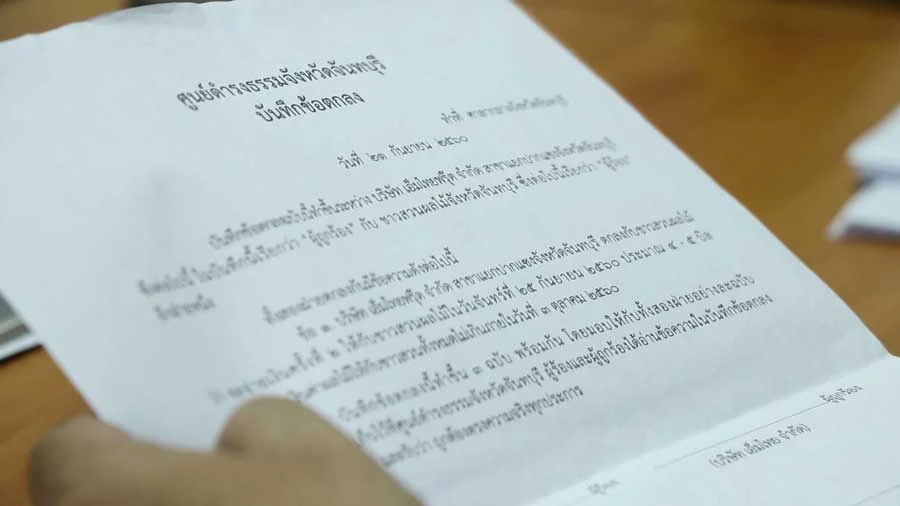 ศูนย์ดำรงธรรมจังหวัดจันทบุรี
บันทึกข้อตกลง
ทำที่ ศาลากลางจังหวัดจันทบุรี
วันที่ ๒๑ กันยายน ๒๕๖๐
บันทึกข้อตกลงฉบับนี้ทำขึ้นระหว่าง บริษัท เอ็มไทยฟรุ๊ต จำกัด สาขาแยกปากแซงจังหวัดจันทบุรี
ซึ่งต่อไปนี้ ในบันทึกนี้เรียกว่า "ผู้ถูกร้อง" กับ ชาวสวนผลไม้จังหวัดจันทบุรี ซึ่งต่อไปนี้เรียกว่า "ผู้ร้อง"
อีกฝ่ายหนึ่ง
ทั้งสองฝ่ายตกลงกันมีข้อความดังต่อไปนี้
ข้อ ๑. บริษัท เอ็มไทยฟรุ๊ต จำกัด สาขาแยกปากแซงจังหวัดจันทบุรี ตกลงกับชาวสวนผลไม้
จะจ่ายเงินครั้งที่ ๒ ให้กับชาวสวนผลไม้ในวันจันทร์ที่ ๒๕ กันยายน ๒๕๖๐ ประมาณ ๔ - ๕ บิล
ค่าผลไม้ให้กับชาวสวนทั้งหมดไม่เกินภายในวันที่ ๓ ตุลาคม ๒๕๖๐
บันทึกข้อตกลงนี้ทำขึ้น ๓ ฉบับ พร้อมกัน โดยมอบให้กับทั้งสองฝ่ายอย่างละฉบับ
เก็บไว้ที่ศูนย์ดำรงธรรมจังหวัดจันทบุรี ผู้ร้องและผู้ถูกร้องได้อ่านข้อความในบันทึกข้อตกลง
และถือว่า ถูกต้องตรงความจริงทุกประการ
ผู้ร้อง
ผู้ถูกร้อง
(บริษัท เอ็มไทย จำกัด)